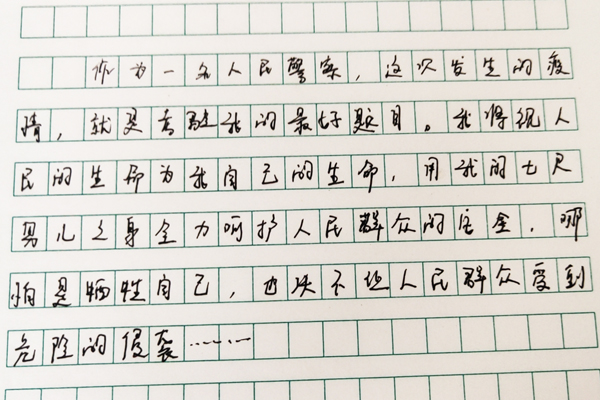 作为一名人民警察，这次发生的疫
情，就是考验我的最好题目。我将视人
民的生命为我自己的生命，用我的七尺
男儿之身全力呵护人民群众的安全，哪
怕是牺牲自己，也决不让人民群众受到
危险的侵袭……